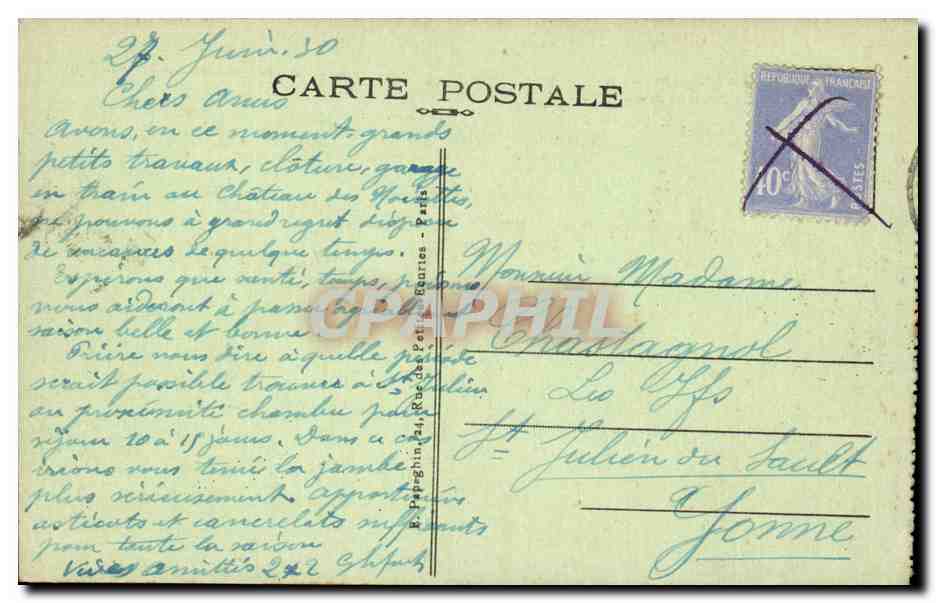 27 Juin 30
CARTE POSTALE
Chers Amis
Avons, en ce moment grands
petits travaux, clôture, garage
en train au Château des
ne pouvons à grand regret disposer
de vacances de quelque temps.
Espérons que santé, temps,
nous aideront à passer
saison belle et bonne
Prière nous dire à quelle période
serait possible trouver à St Julien
ou proximité chambre pour
séjour 10 à 15 jours. Dans ce cas
irions vous tenir la jambe
plus sérieusement apporterions
asticots et cancrelats suffisants
pour toute la saison
Vives amitiés 2 x 2
E. Papeghin, 24, Rue des Petites Ecuries - Paris
REPUBLIQUE FRANÇAISE
10c
POSTES
Monsieur Madame
Chastagnol
Les Ifs
St Julien du Sault
Yonne
CPAPHIL